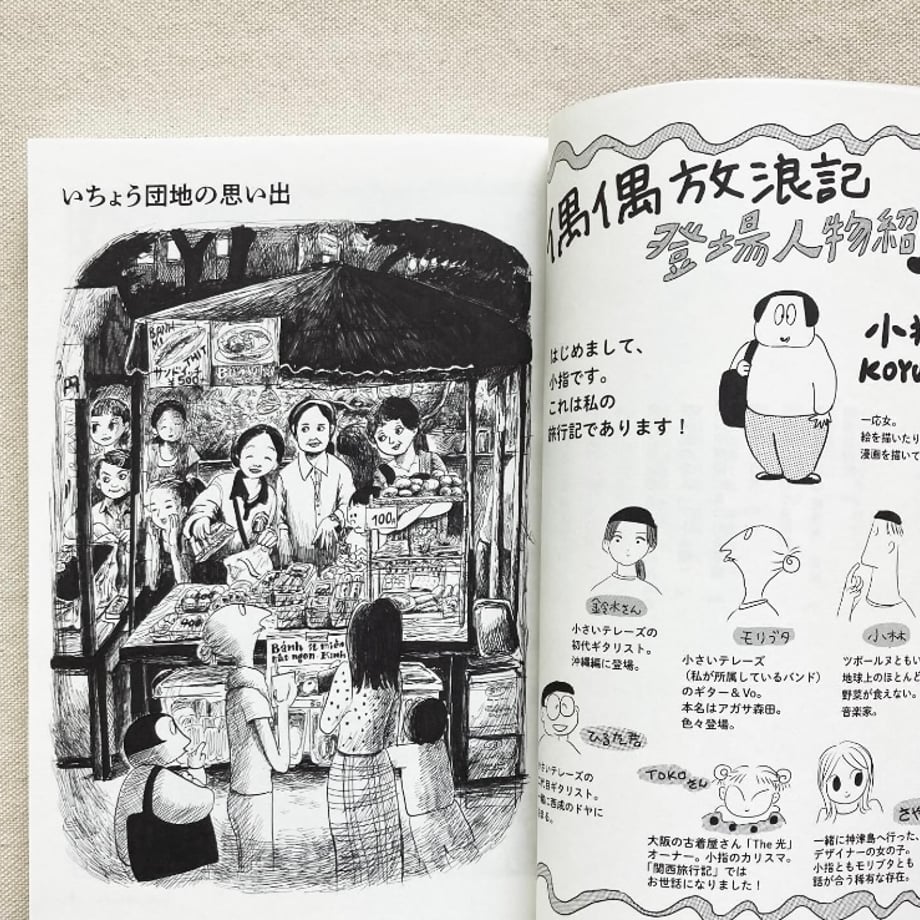 いちょう団地の思い出
BÁNH
MÌ
THỊT
サンドイッチ
¥500
100
Bánh ít miền
偶偶放浪記
登場人物紹
はじめまして、
小指です。
これは私の
旅行記であります！
小指
KOYU
一応女。
絵を描いたり
漫画を描いて
鈴木さん
小さいテレーズの
初代ギタリスト。
沖縄編に登場。
モリブタ
小さいテレーズ
（私が所属しているバンド）
のギター＆Vo。
本名はアガサ森田。
色々登場。
小林
ツボールヌともい
地球上のほとんど
野菜が食えない。
音楽家。
ひるた君
小さいテレーズの
代目ギタリスト。
緒に西成のドヤに
まる。
TOKOさん
大阪の古着屋さん「The 光」
オーナー。小指のカリスマ。
「関西旅行記」では
お世話になりました！
さや
一緒に神津島へ行った、
デザイナーの女の子。
小指ともモリブタとも
話が合う稀有な存在。